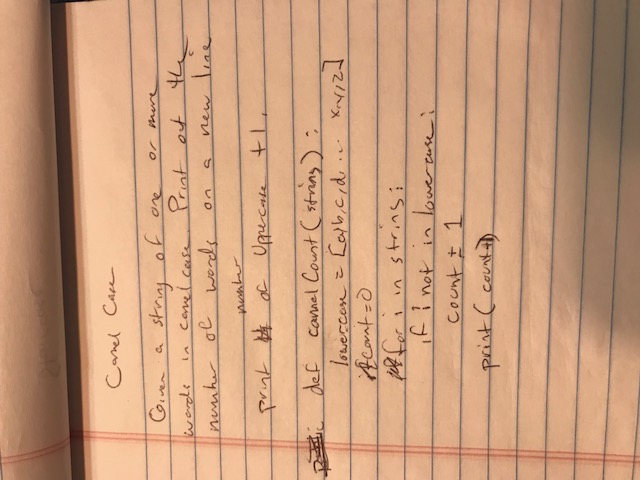 Camel Case
Given a string of one or more
words in camel case. Print out the
number of words on a new line
number
print of Uppercase +1.
def camel Count (string):
lowercase = [a,b,c,d, ... x,y,z]
count = 0
for i in string:
if i not in lowercase:
count ± 1
print ( count+1)